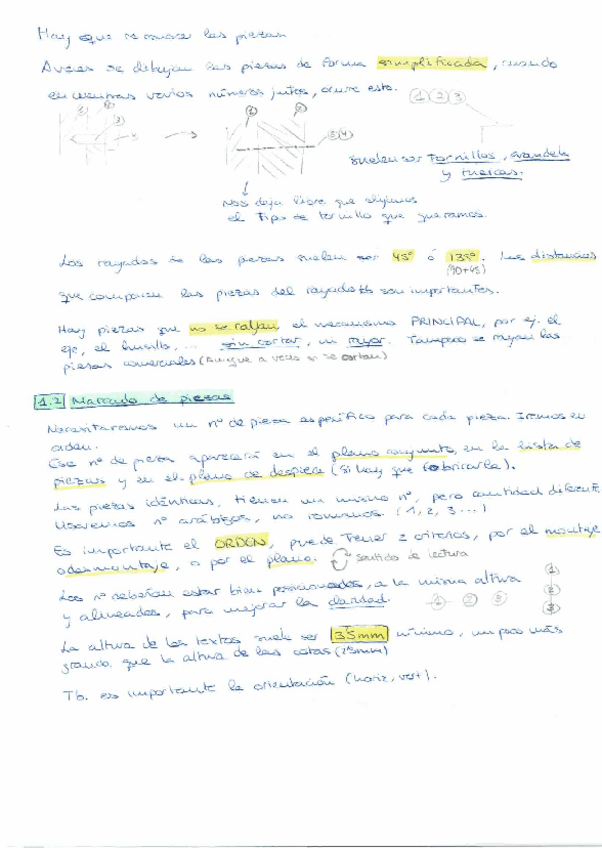 Hay que remarcar las piezas
A veces se dibujan las piezas de forma simplificada, cuando
encuentras varios números juntos, ocurre esto. 1 2 3
1 2 1 2
3
4 3 4
Suelen ser Tornillos, arandela
y tuercas.
Nos deja libre que elijamos
el Tipo de tornillo que queramos.
Los rayados de las piezas suelen ser 45° ó 135°. Las distancias
(90+45)
que comparten las piezas del rayado tb son importantes.
Hay piezas que no se rallan, el mecanismo PRINCIPAL, por ej. el
eje, el husillo, ... sin cortar, un rayor. Tampoco se rayan las
piezas comerciales (Aunque a veces si se cortan)
1.2 Marcado de piezas
Necesitaremos un nº de pieza específico para cada pieza. Iremos en
orden.
Ese nº de pieza aparecerá en el plano conjunto, en la lista de
piezas y en el plano de despiece (si hay que fabricarla).
Las piezas idénticas, tienen un mismo nº, pero cantidad diferente
Usaremos nº arábigos, no romanos. (1, 2, 3...)
Es importante el ORDEN, puede Tener 2 criterios, por el montaje
o desmontaje, o por el plano. sentido de lectura
Los nº deberían estar bien posicionados, a la misma altura 1
y alineados, para mejorar la claridad. 1 2 3 2
3
La altura de los textos suele ser 3'5mm mínimo, un poco más
grande, que la altura de las cotas (2'5mm)
Tb. es importante la orientación (horiz, vert).